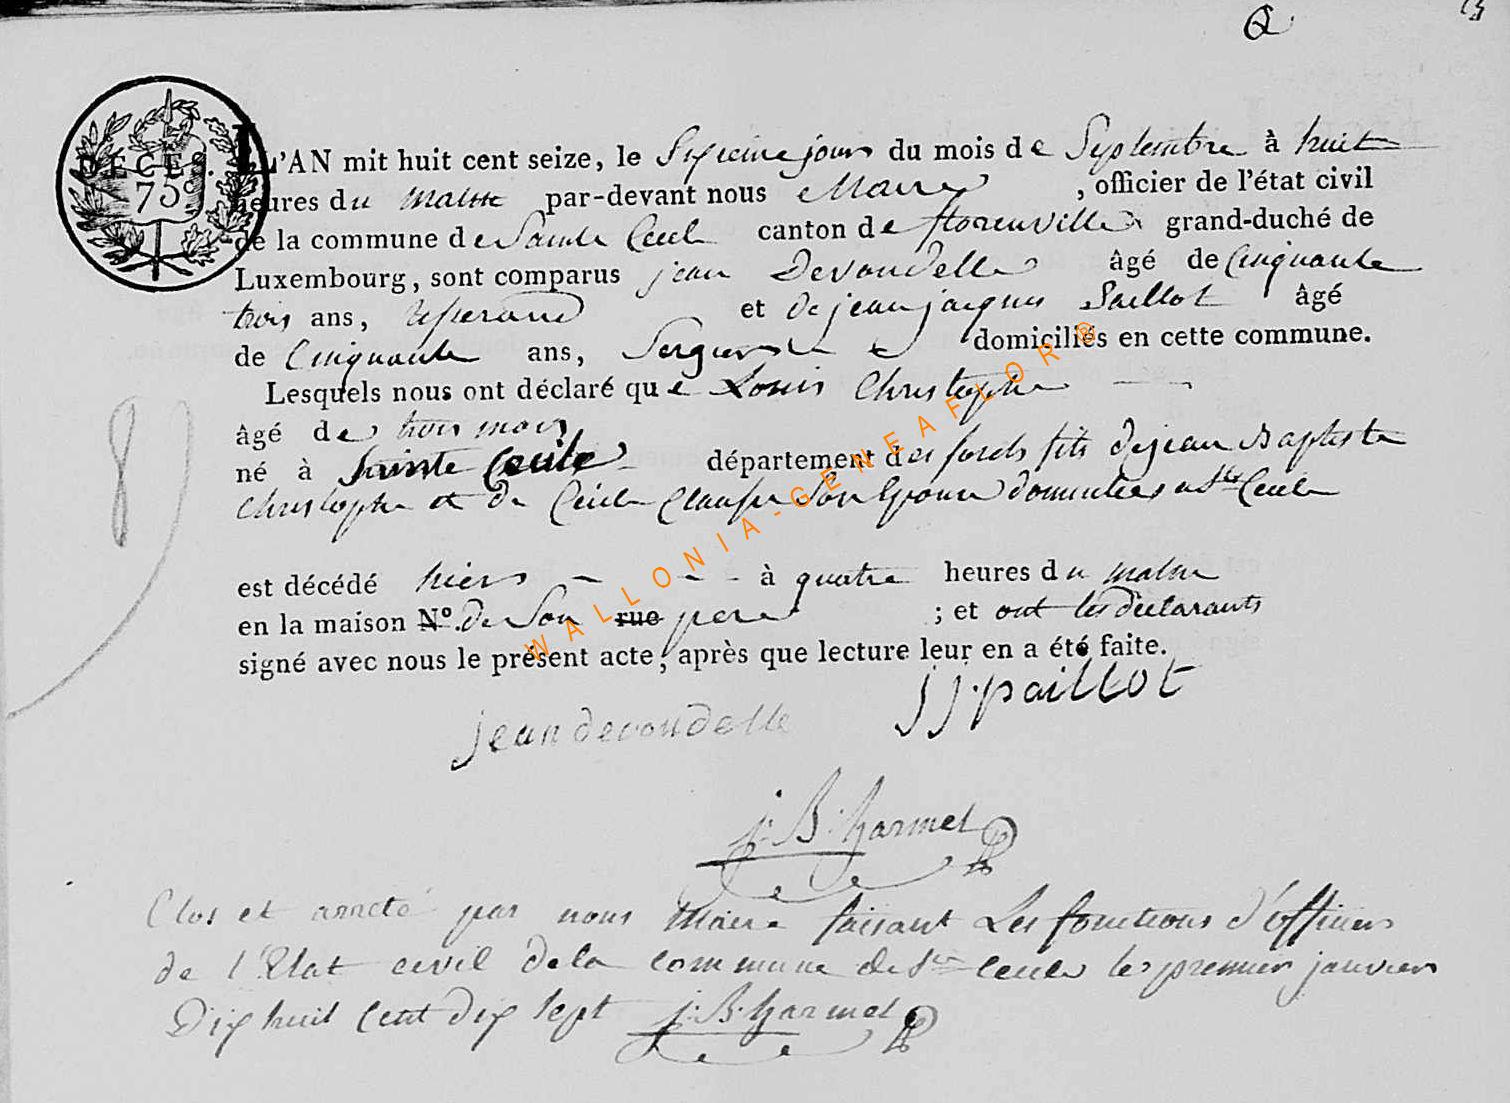 DÉCES.
75 c
L'AN mil huit cent seize, le Sixieme jour du mois de Septembre à huit
heures du matin par-devant nous Maire, officier de l'état civil
de la commune de Sainte Cecile canton de florenville grand-duché de
Luxembourg, sont comparus jean Devoudelle âgé de Cinquante
trois ans, et de jean jacques Paillot âgé
de Cinquante ans, domiciliés en cette commune.
Lesquels nous ont déclaré que Louis Christophe
âgé de trois mois
né à Sainte Cecile département des forets fils de jean Baptiste
Christophe et de Cecile Son Epouse domicilies a Ste Cecile
est décédé hier à quatre heures du matin
en la maison N.º de Son rue pere ; et ont les déclarants
signé avec nous le présent acte, après que lecture leur en a été faite.
jean devoudelle jj. paillot
j: B: harmel
Clos et arreté par nous Maire faisant Les fonctions d'officier
de l'Etat civil de la commune de Ste Cecile le premier janvier
Dix huit Cent dix sept j: B: harmel
WALLONIA-GENEAFLOR ©